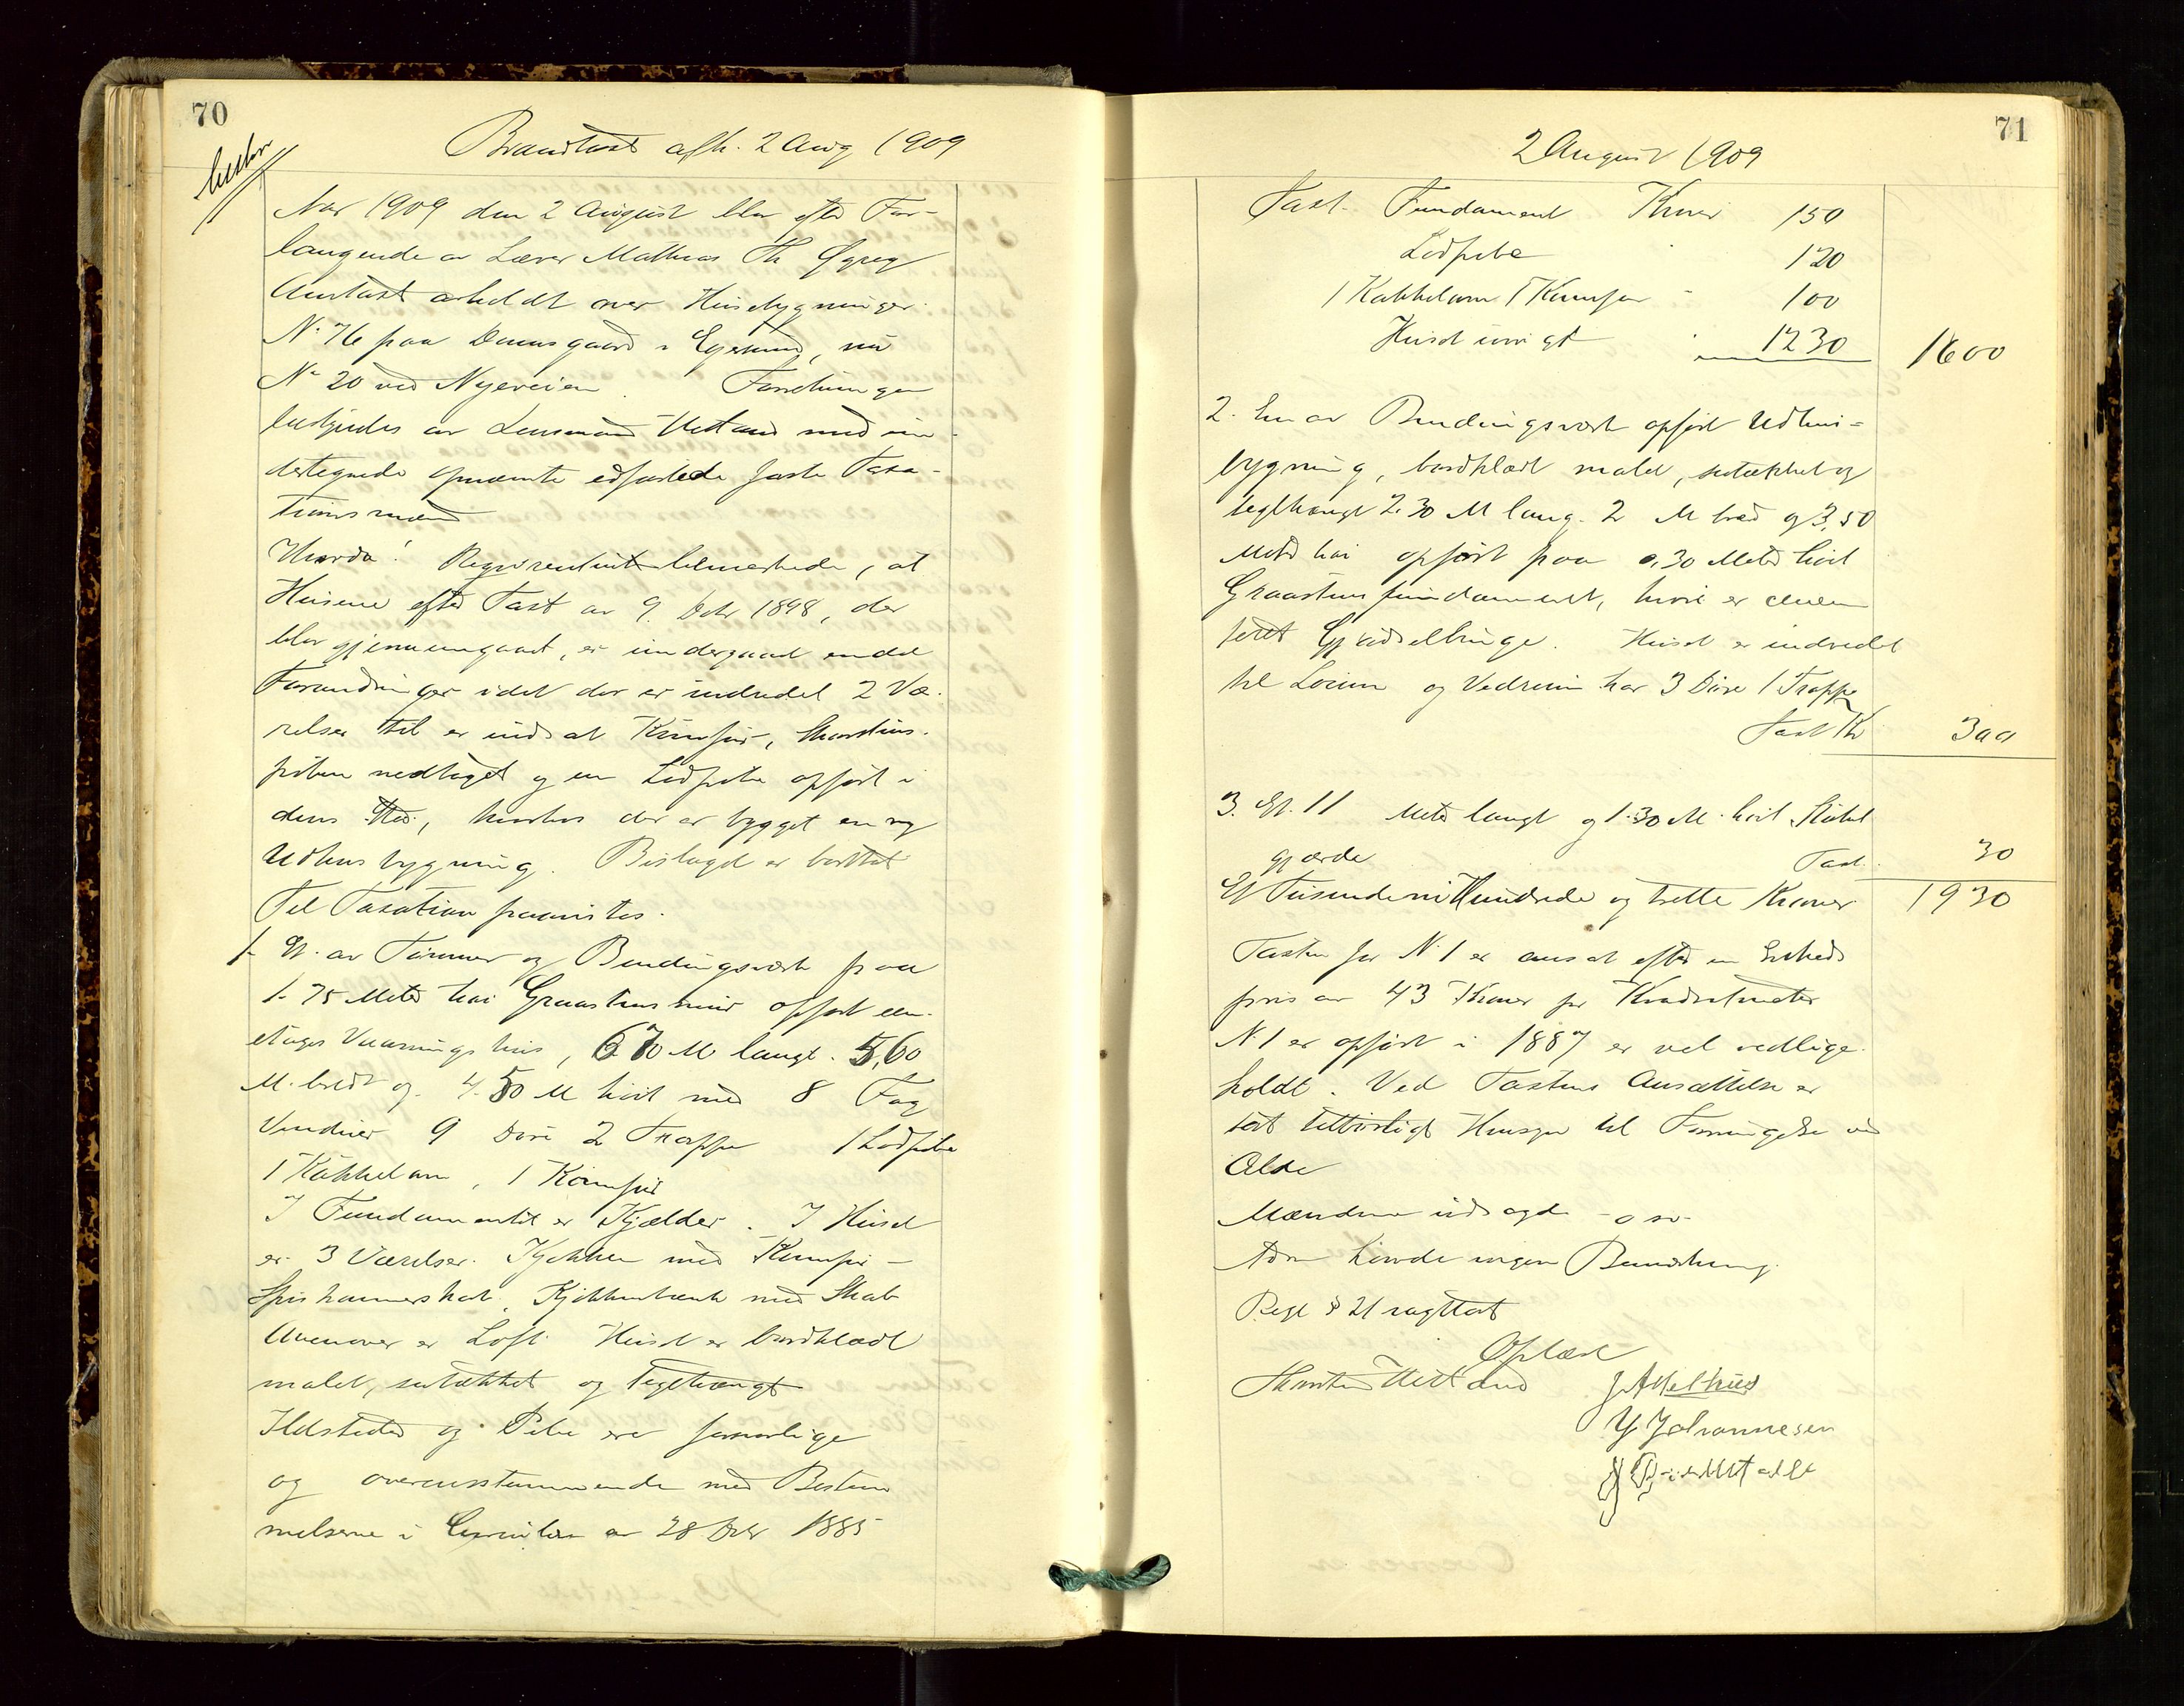 70
Brandtaxt afh. 2 Aug 1909
Aar 1909 den 2 August blev efter For-
langende av Mathias Th
Omtaxt avholdt over Husebygninger
No 76 paa Damsgaard i Egersund, nu
No 20 ved Nyeveien. Forretningen
betjentes av Lensmand Hetland med un-
dertegnede opnævnte edfæstede faste Taxa-
tionsmænd
Hvorda! Reqvirenten bemærkede, at
Husene efter Taxt av 9. Debr 1898, der
blev gjennemgaaet, er undergaaet endel
Forandringer idet der er indredet 2 Væ-
relser til er indsat Komfur, Skorstens-
piben nedtaget og en Lødpibe opført i
dens Sted, hvorhos der er bygget en ny
Udhusbygning. Bislaget er borttat
Til Taxation paavistes.
1. Et av Tømmer og Bindingsværk paa
1.75 Meter høi Graastensmur opført een-
etages Vaaningshus, 6.70 M langt. 5,60
M. bredt og 4.50 M høit med 8 Fag
Vinduer 9 Døre 2 Trapper 1 Lødpibe
1 Kakkelovn, 1 Komfur
I Fundamentet er Kjælder. I Huset
er 3 Værelser. Kjøkken med Komfur
Spiskammerskab. Kjøkkenbænk med Skab
Ovenover er Loft. Huset er bordklædt
malet, sutækket og teglhængt
Ildsteder og Piber ere forsvarlige
og overensstemmende med Bestem
melserne i Circulære av 28 Debr 1885
71
2 August 1909
Taxt. Fundament Kroner 150
Lødpibe " 120
1 Kakkelovn 1 Komfur " 100
Huset iøvrigt " 1230 1600
2. En av Bindingsværk opført Udhus-
bygning, bordklædt malet, sutækket og
teglhængt 2.30 M lang. 2 M bred og 3,50
Meter høi opført paa 0,30 Meter høit
Graastensfundament, hvori er cemen
teret Gjødselbinge. Huset er indredet
til Locum og Vedrum har 3 Døre 1 Trappe
Taxt Kr 300
3. Et. 11 Meter langt og 1.30 M. høit Staket
gjærde Taxt. 30
Et Tusinde ni Hundrede og trette Kroner 1930
Taxten for N. 1 er ansat efter en Enheds
pris av 43 Kroner pr Kvadratmeter
N. 1 er opført i 1887 er vel vedlige-
holdt. Ved Taxtens Ansættelse er
tat tilbørligt Hensyn til Forringelse ved
Ælde
Mændene udsagde o sv-
havde ingen Bemærkning.
Regl § 21 iagttat
Oplæst
Hetland
Y Johannesen